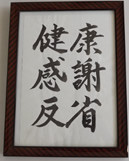 康謝省
健感反